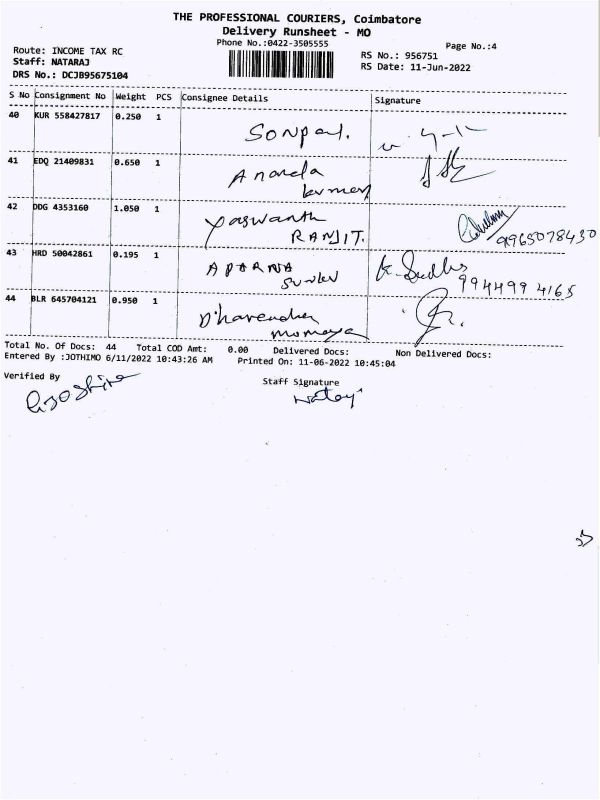 THE PROFESSIONAL COURIERS, Coimbatore
Delivery Runsheet - MO
Phone No.:0422-3505555
Page No.:4
Route: INCOME TAX RC
Staff: NATARAJ
DRS No.: DCJB95675104
RS No.: 956751
RS Date: 11-Jun-2022
S No Consignment No Weight PCS Consignee Details Signature
40 KUR 558427817 0.250 1
Sonpal.
41 EDQ 21409831 0.650 1
Ananda
kumar
42 DDG 4353160 1.050 1
Yaswanth
RANJIT. 9965078430
43 HRD 50042861 0.195 1
APARNA K. Sudha
9944994165
44 BLR 645704121 0.950 1
Dharendra
Total No. Of Docs: 44 Total COD Amt: 0.00 Delivered Docs: Non Delivered Docs:
Entered By :JOTHIMO 6/11/2022 10:43:26 AM Printed On: 11-06-2022 10:45:04
Verified By Staff Signature